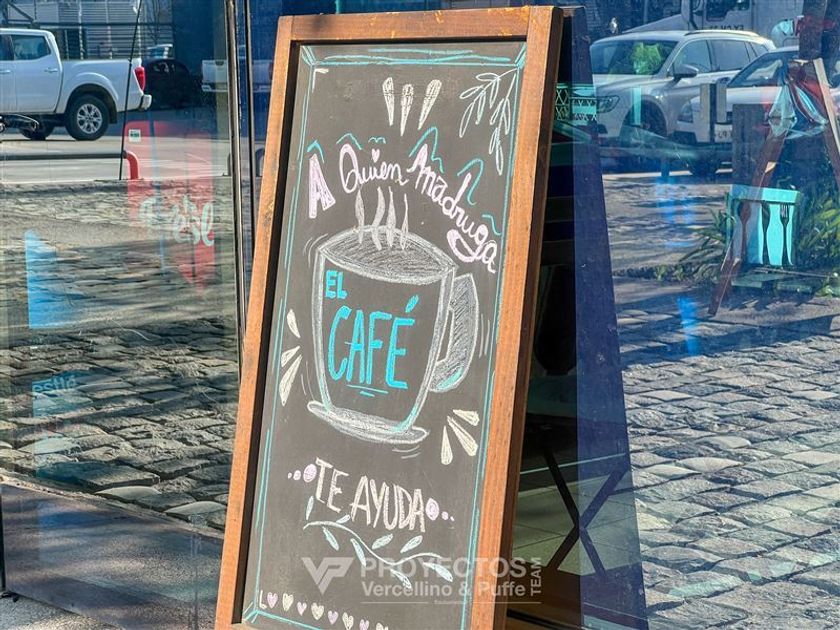 A Quien madruga
EL
CAFÉ
TE AYUDA
PROYECTOS
Vercellino & Puffe
TEAM